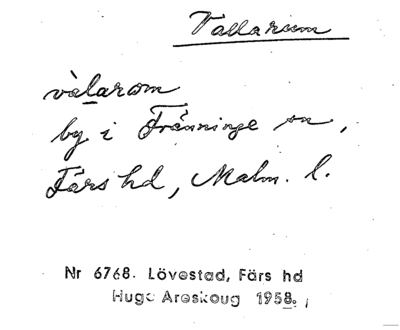 Vallarum
vàlarom
by i Tranninge sn,
Färs hd, Malm. l.
Nr 6768. Lövestad, Färs hd
Hugo Areskoug 1958.